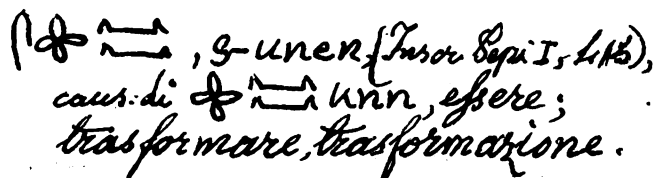 𓋴𓇬𓈖𓈖, s-unen (Inscr. Sepi I,
caus: di 𓇬𓈖𓈖 unn, essere;
trasformare, trasformazione.